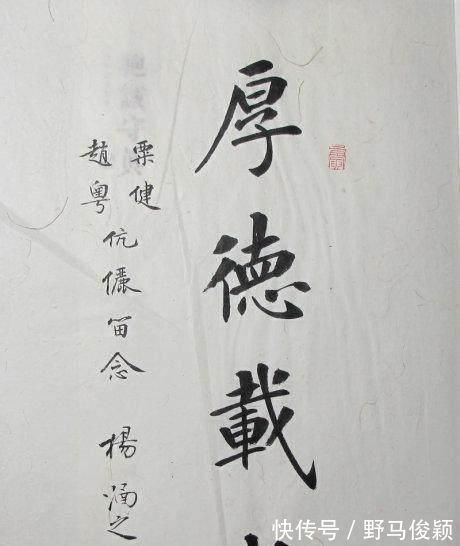 厚德載
栗健
趙粵
伉儷留念 楊涵之
快传号/野马俊颖